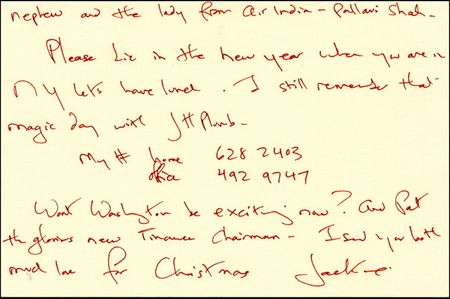 nephew and the lady from Air India - Pallavi Shah -
Please Liz in the new year when you are in
NY let's have lunch. I still remember that
magic day with JH Plumb -
My # home 628 2403
office 492 9747
Wont Washington be exciting now? And Pat
the glorious new Finance Chairman - I send you both
much love for Christmas Jackie